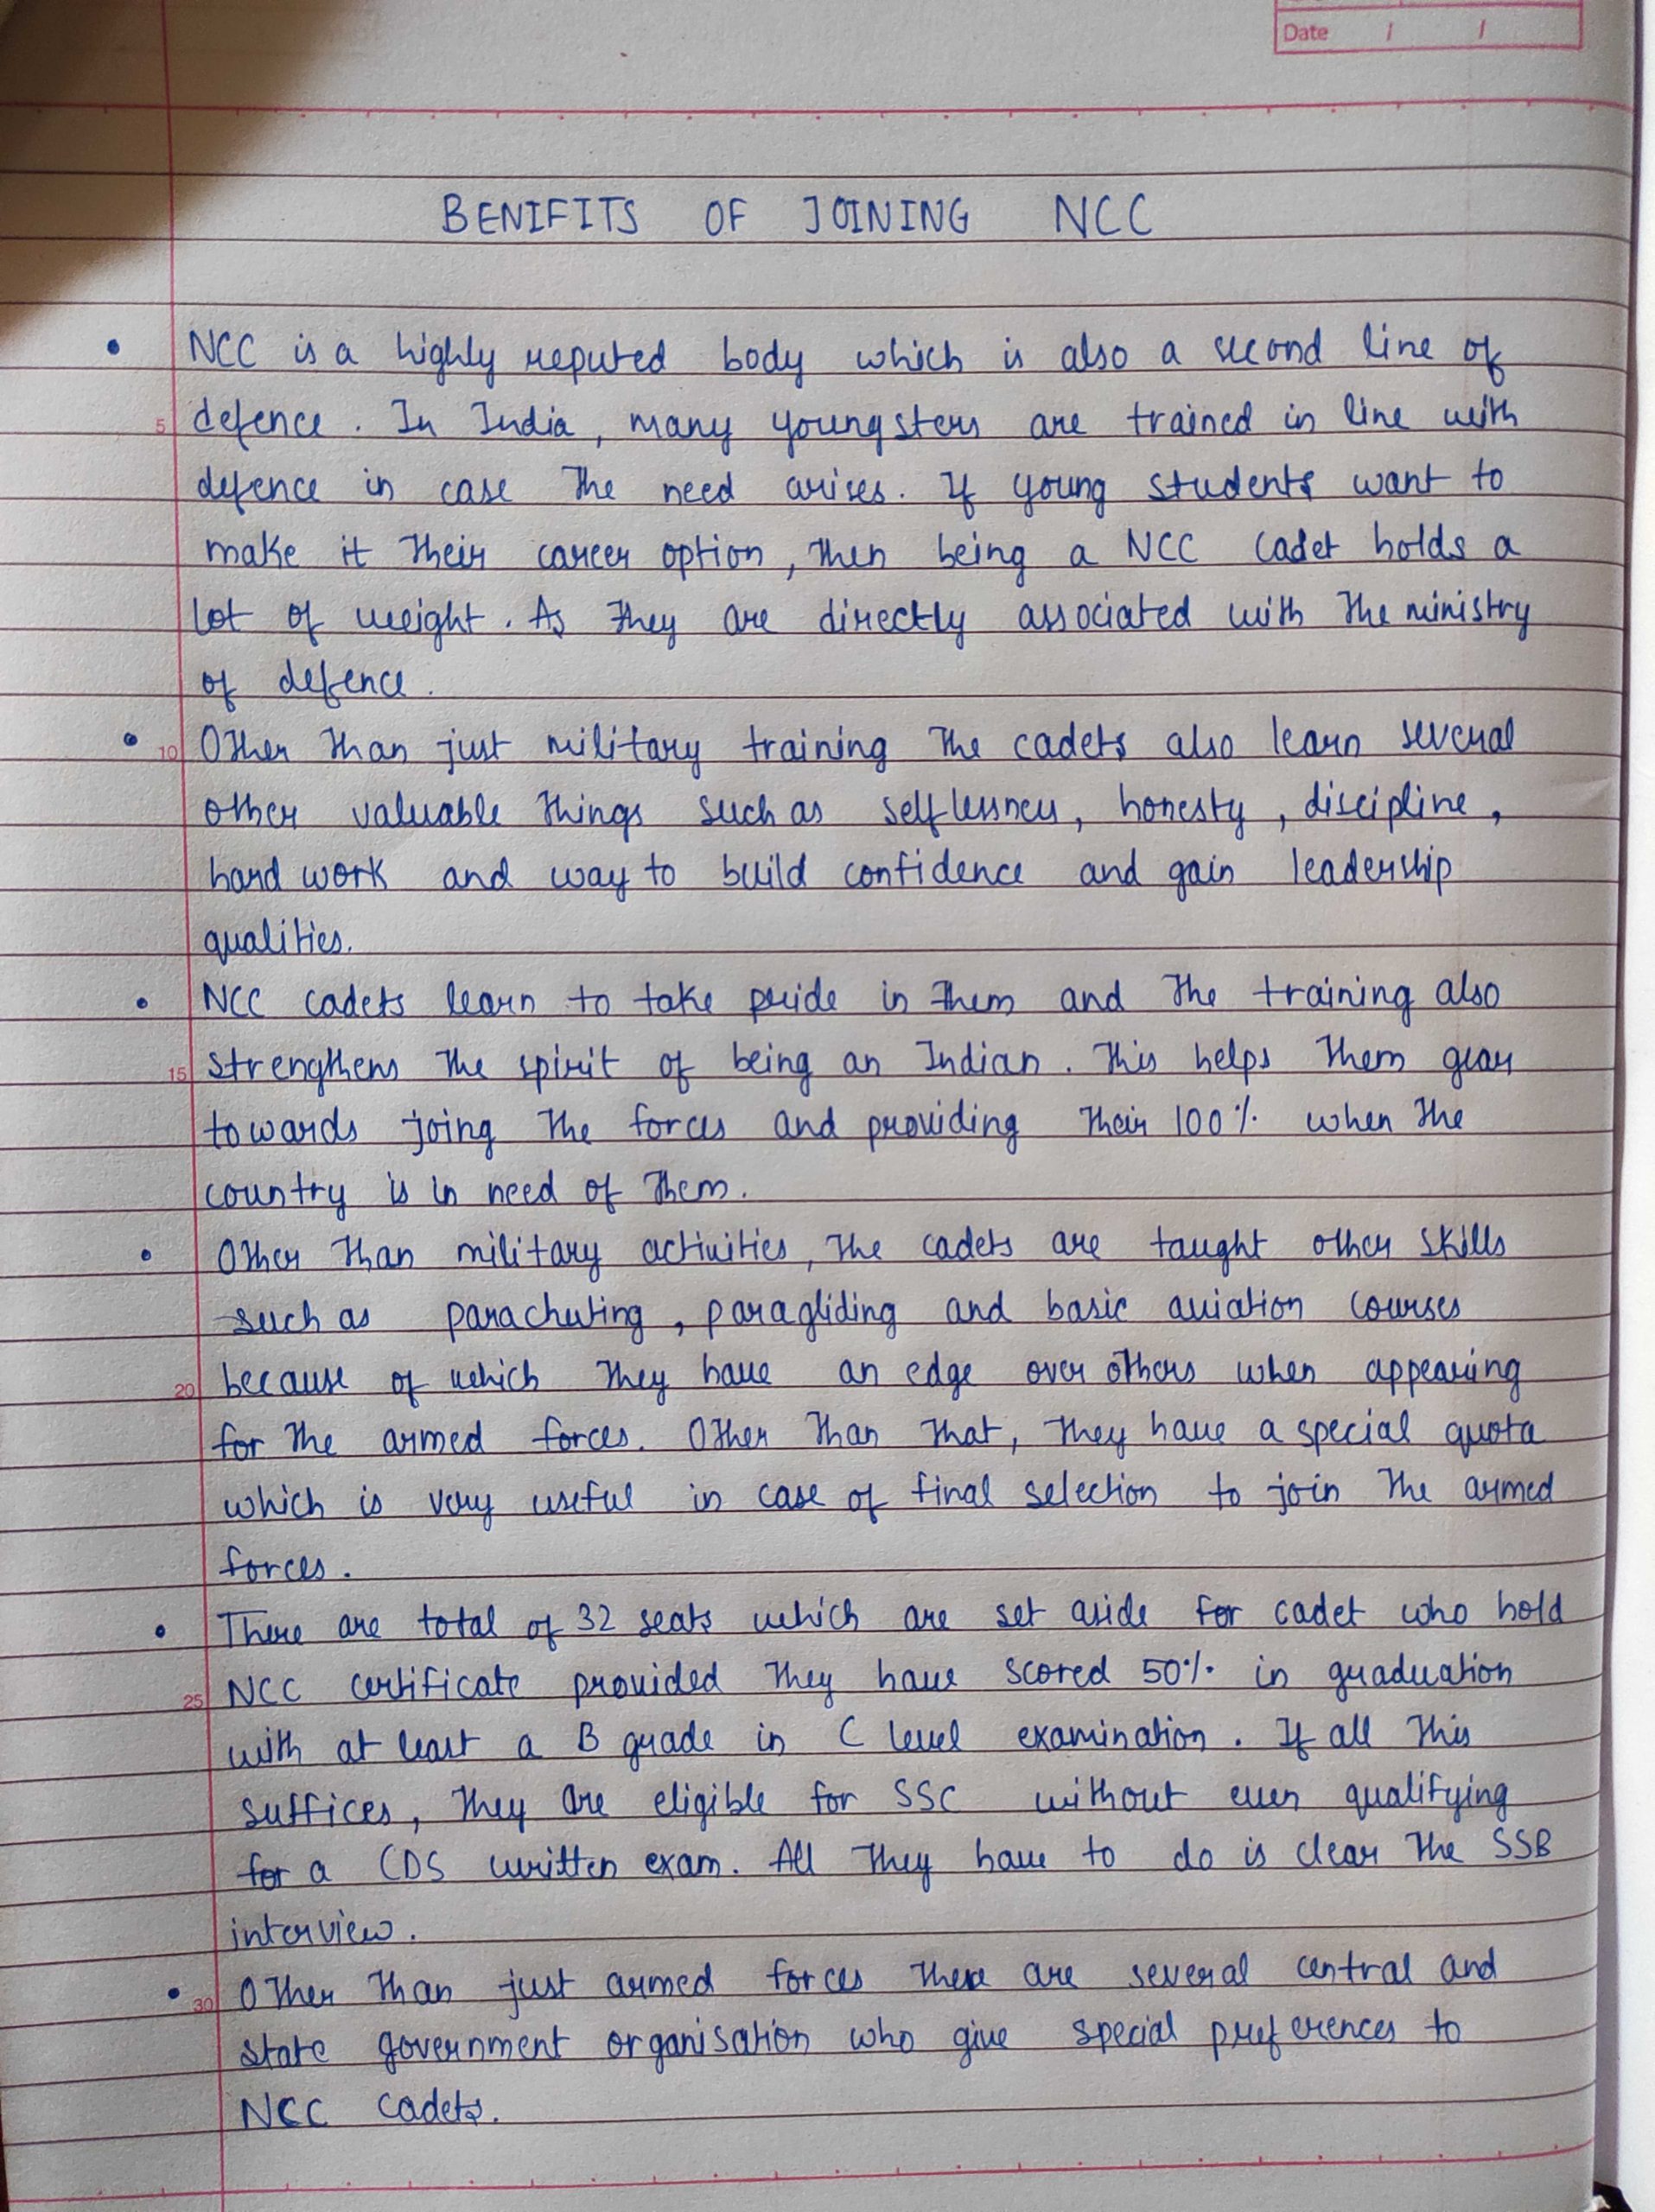 Date / /
BENIFITS OF JOINING NCC
• NCC is a highly reputed body which is also a second line of
5 defence. In India, many youngsters are trained in line with
defence in case the need arises. If young students want to
make it their career option, then being a NCC cadet holds a
lot of weight. As they are directly associated with the ministry
of defence.
• 10 Other than just military training the cadets also learn several
other valuable things such as selflessness, honesty, discipline,
hard work and way to build confidence and gain leadership
qualities.
• NCC cadets learn to take pride in them and the training also
15 strengthens the spirit of being an Indian. This helps them gear
towards joing the forces and providing their 100% when the
country is in need of them.
• Other than military activities, the cadets are taught other skills
such as parachuting, paragliding and basic aviation courses
20 because of which they have an edge over others when appearing
for the armed forces. Other than that, they have a special quota
which is very useful in case of final selection to join the armed
forces.
• There are total of 32 seats which are set aside for cadet who hold
25 NCC certificate provided they have scored 50% in graduation
with at least a B grade in C level examination. If all this
suffices, they are eligible for SSC without even qualifying
for a CDS written exam. All they have to do is clear the SSB
interview.
• 30 Other than just armed forces there are several central and
state government organisation who give special preferences to
NCC cadets.